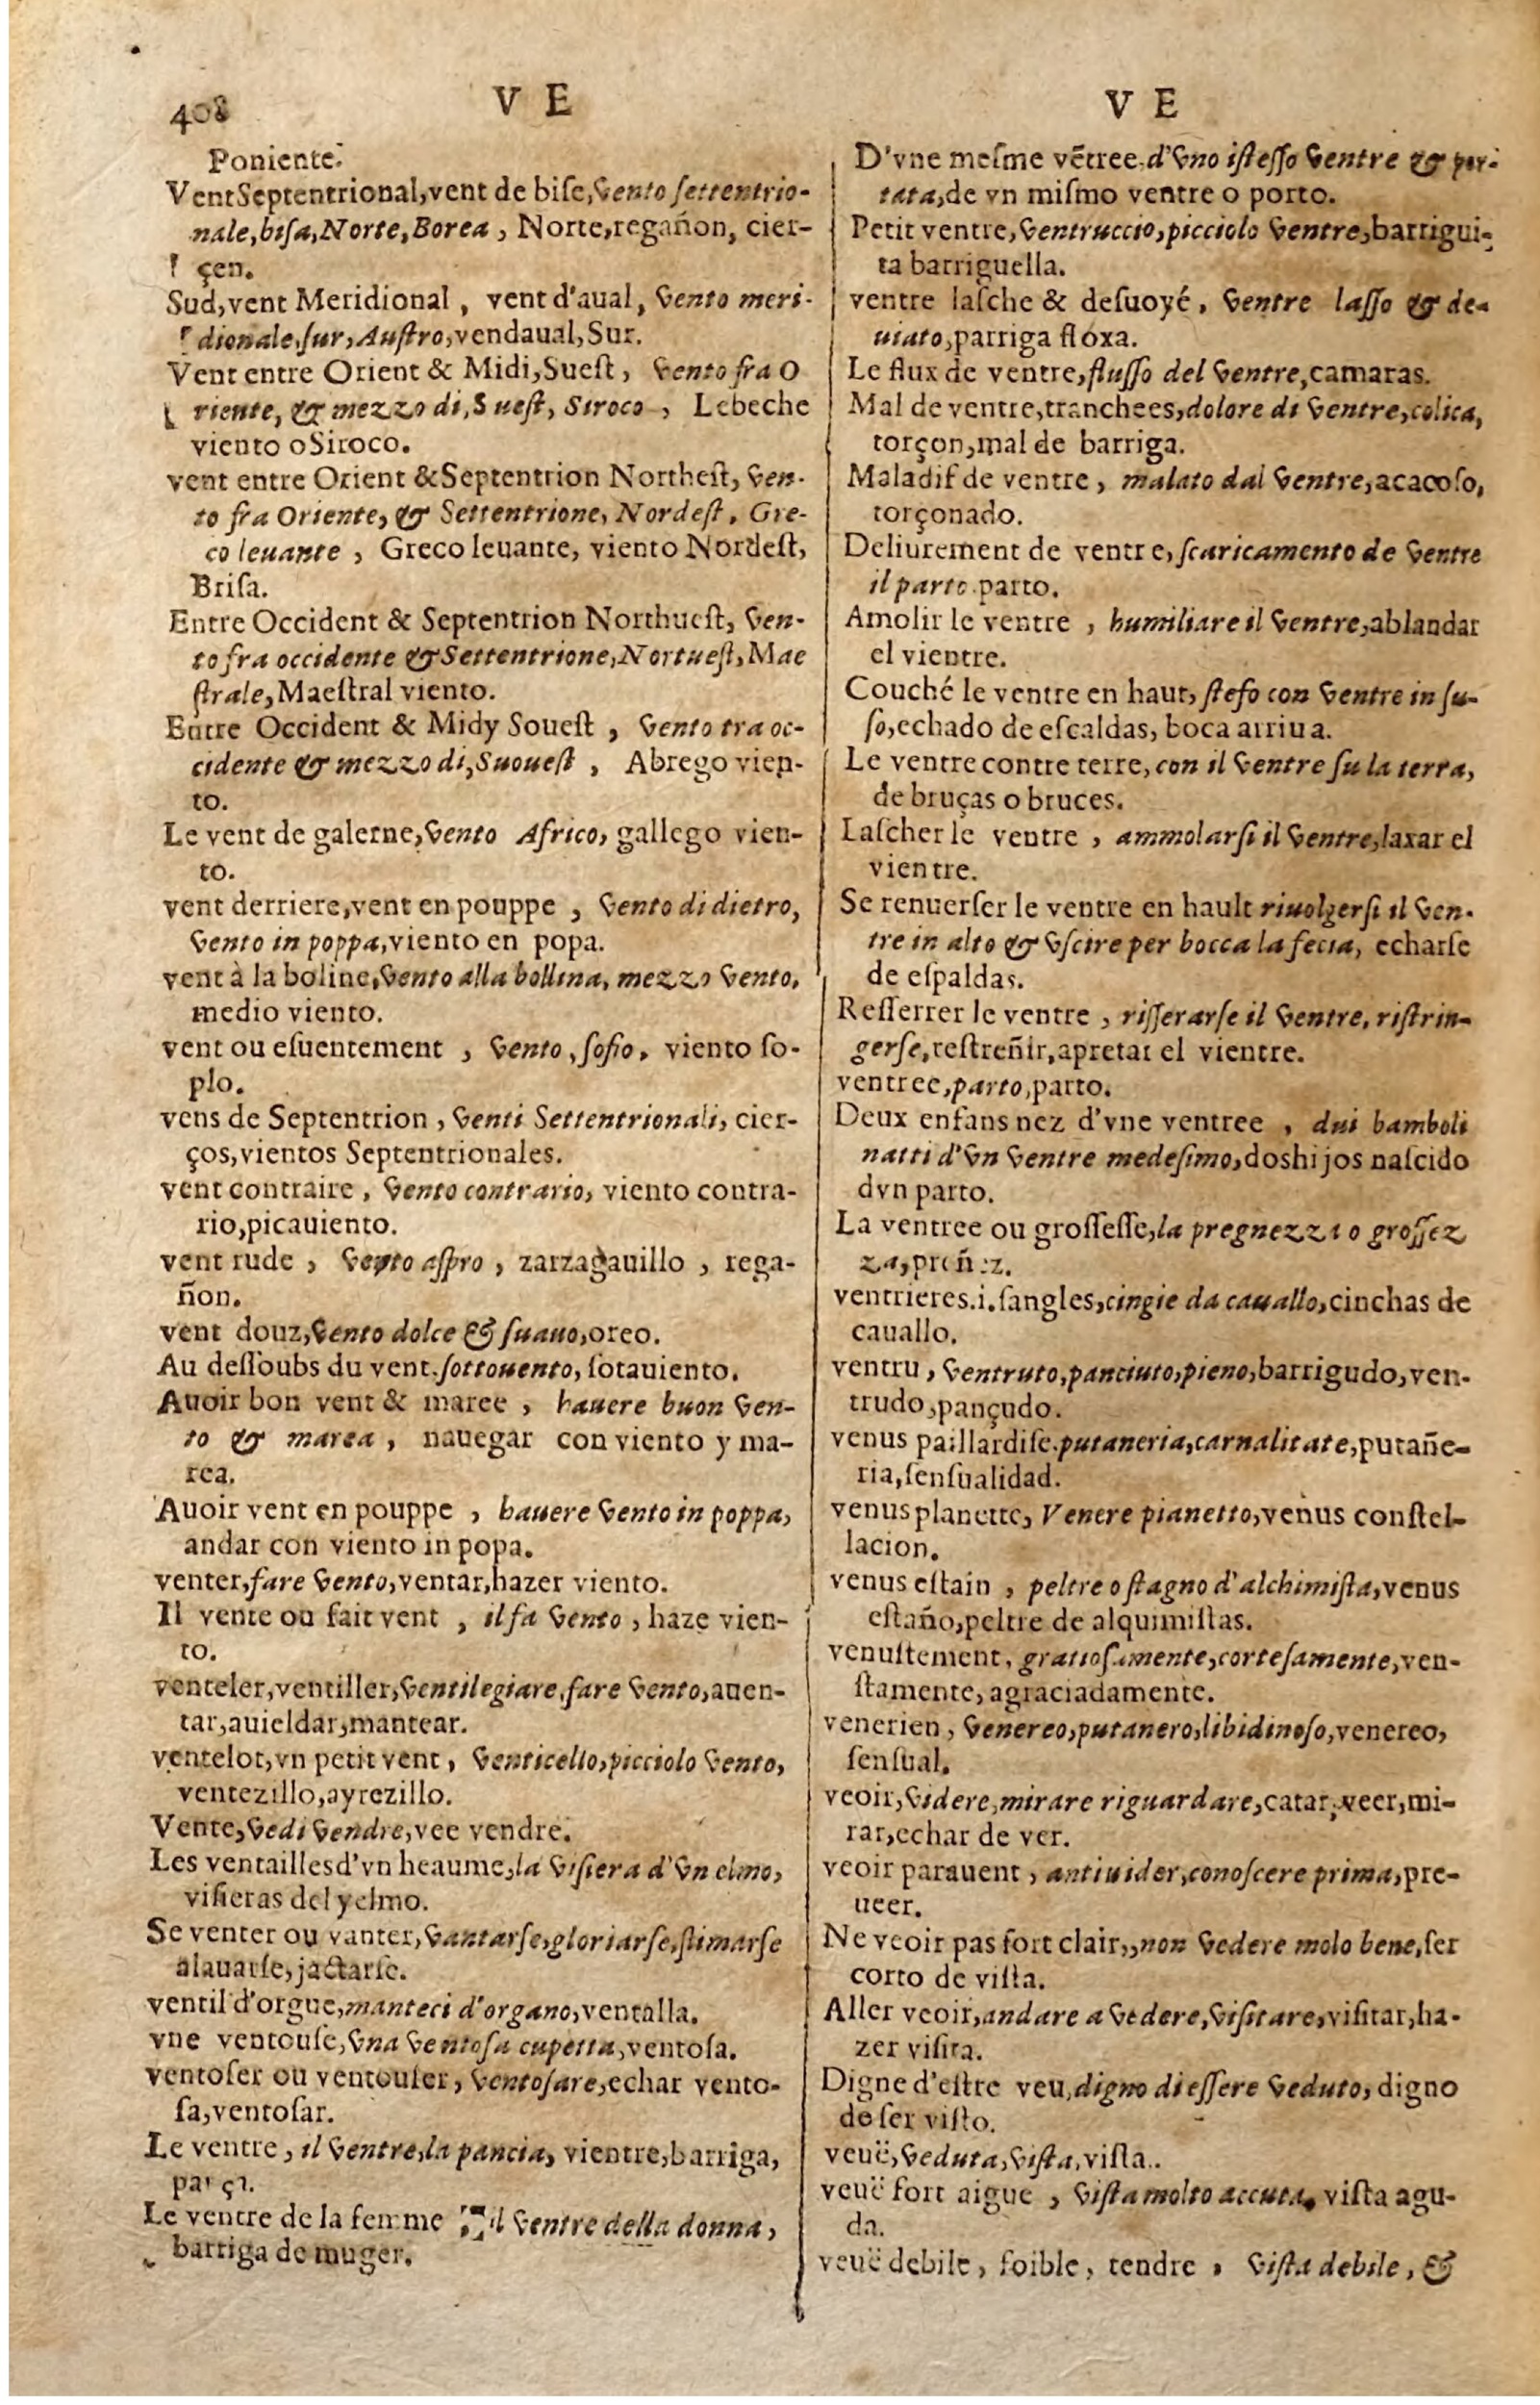 408
V E
Poniente.
Vent Septentrional, vent de bise, vento settentrio-
nale, bisa, Norte, Borea, Norte, regañon, cier-
çen.
Sud, vent Meridional, vent d'aual, vento meri-
dionale, sur, Austro, vendaual, Sur.
Vent entre Orient & Midi, Suest, vento fra O
riente, & mezzo di, Suest, Siroco, Lebeche
viento o Siroco.
vent entre Orient & Septentrion Northest, ven-
to fra Oriente, & Settentrione, Nordest, Gre-
co leuante, Greco leuante, viento Nordest,
Brisa.
Entre Occident & Septentrion Northuest, ven-
to fra occidente & Settentrione, Nortuest, Mae
strale, Maestral viento.
Entre Occident & Midy Souest, vento tra oc-
cidente & mezzo di, Suouest, Abrego vien-
to.
Le vent de galerne, vento Africo, gallego vien-
to.
vent derriere, vent en pouppe, vento di dietro,
vento in poppa, viento en popa.
vent à la boline, vento alla bollina, mezzo vento,
medio viento.
vent ou esuentement, vento, sofio, viento so-
plo.
vens de Septentrion, venti Settentrionali, cier-
ços, vientos Septentrionales.
vent contraire, vento contrario, viento contra-
rio, picauiento.
vent rude, vento aspro, zarzagauillo, rega-
ñon.
vent douz, vento dolce & suauo, oreo.
Au dessoubs du vent. sottouento, sotauiento.
Auoir bon vent & maree, hauere buon ven-
to & marea, nauegar con viento y ma-
rea.
Auoir vent en pouppe, hauere vento in poppa,
andar con viento in popa.
venter, fare vento, ventar, hazer viento.
Il vente ou fait vent, il fa vento, haze vien-
to.
venteler, ventiller, ventilegiare, fare vento, auen-
tar, auieldar, mantear.
ventelot, vn petit vent, venticello, picciolo vento,
ventezillo, ayrezillo.
Vente, vedi vendre, vee vendre.
Les ventailles d'vn heaume, la visiera d'vn elmo,
visieras del yelmo.
Se venter ou vanter, vantarse, gloriarse, stimarse
alauarse, jactarse.
ventil d'orgue, manteci d'organo, ventalla.
vne ventouse, vna ventosa cupetta, ventosa.
ventoser ou ventouser, ventosare, echar vento-
sa, ventosar.
Le ventre, il ventre, la pancia, vientre, barriga,
Le ventre de la femme il ventre della donna,
barriga de muger.
V E
D'vne mesme vẽtree. d'vno istesso ventre & por-
tata, de vn mismo ventre o porto.
Petit ventre, ventruccio, picciolo ventre, barrigui-
ta barriguella.
ventre lasche & desuoyé, ventre lasso & de-
uiato, parriga floxa.
Le flux de ventre, flusso del ventre, camaras.
Mal de ventre, tranchees, dolore di ventre, colica,
torçon, mal de barriga.
Maladif de ventre, malato dal ventre, acacoso,
torçonado.
Deliurement de ventre, scaricamento de ventre
il parto. parto.
Amolir le ventre, humiliare il ventre, ablandar
el vientre.
Couché le ventre en haut, steso con ventre in su-
so, echado de escaldas, boca arriua.
Le ventre contre terre, con il ventre su la terra,
de bruças o bruces.
Lascher le ventre, ammolarsi il ventre, laxar el
vientre.
Se renuerser le ventre en hault riuolgersi il ven-
tre in alto & vscire per bocca la fecia, echarse
de espaldas.
Resserrer le ventre, risserarse il ventre, ristrin-
gerse, restreñir, apretar el vientre.
ventree, parto, parto.
Deux enfans nez d'vne ventree, dui bamboli
natti d'vn ventre medesimo, dos hijos nascido
dvn parto.
La ventree ou grossesse, la pregnezza o grossez
za, preñez.
ventrieres. i. sangles, cingie da cauallo, cinchas de
cauallo.
ventru, ventruto, panciuto, pieno, barrigudo, ven-
trudo, pançudo.
venus paillardise. putaneria, carnalitate, putañe-
ria, sensualidad.
venus planette, Venere pianetto, venus constel-
lacion.
venus estain, peltre o stagno d'alchimista, venus
estaño, peltre de alquimistas.
venustement, gratiosamente, cortesamente, ven-
stamente, agraciadamente.
venerien, venereo, putanero, libidinoso, venereo,
sensual.
veoir, videre, mirare riguardare, catar, veer, mi-
rar, echar de ver.
veoir parauent, antiuider, conoscere prima, pre-
ueer.
Ne veoir pas fort clair,, non vedere molo bene, ser
corto de vista.
Aller veoir, andare a vedere, visitare, visitar, ha-
zer visita.
Digne d'estre veu, digno di essere veduto, digno
de ser visto.
veuë, veduta, vista, vista..
veuë fort aigue, vista molto accuta, vista agu-
da.
veuë debile, foible, tendre, vista debile, &